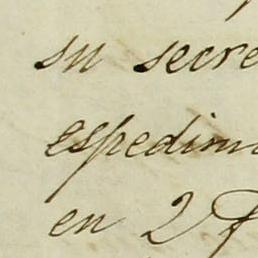 su secre
espedim
en 2 f